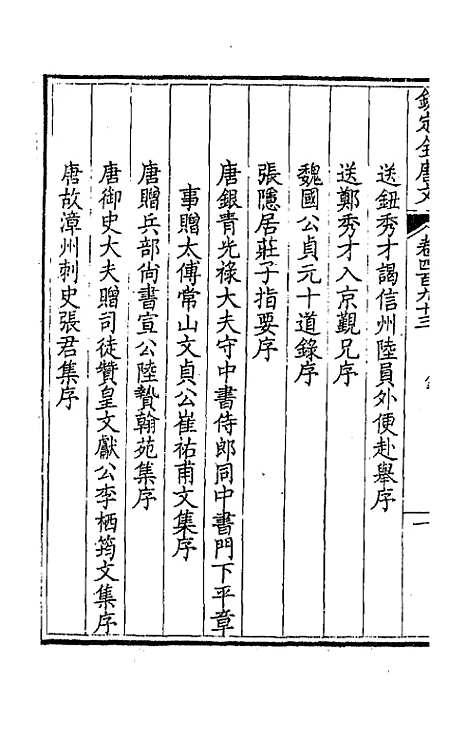 欽定全唐文
卷四百九十三
送鈕秀才謁信州陸員外便赴舉序
送鄭秀才入京覲兄序
魏國公貞元十道錄序
張隱居莊子指要序
唐銀青光祿大夫守中書侍郎同中書門下平章
事贈太傅常山文貞公崔祐甫文集序
唐贈兵部尚書宣公陸贄翰苑集序
唐御史大夫贈司徒贊皇文獻公李栖筠文集序
唐故漳州刺史張君集序